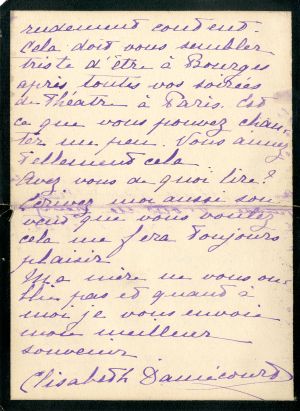 rudement content.
Cela doit vous sembler
triste d'être à Bourges
après toutes vos soirées
de Théâtre à Paris. Est
ce que vous pouvez chan-
ter un peu. Vous aimez
tellement cela
Avez vous de quoi lire?
Ecrivez moi aussi sou
vent que vous voulez
cela me fera toujours
plaisir
Ma mère ne vous ou-
blie pas et quant à
moi je vous envoie
mon meilleur
souvenir
Elisabeth